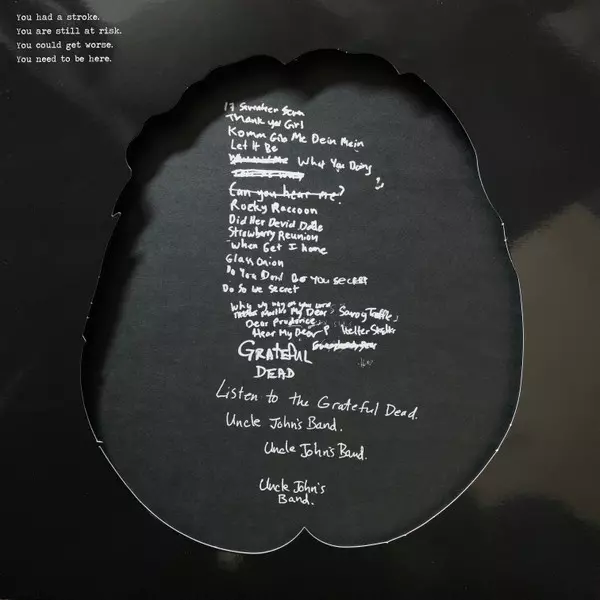 You had a stroke.
You are still at risk.
You could get worse.
You need to be here.
17 Seventeen Seven
Thank you Girl
Komm Gib Me Dein Mein
Let It Be
What You Doing
Can you hear me?
Rocky Raccoon
Did Her Devid Dake
Strawberry Reunion
When Get I Home
Glass Onion
Do You Don't Do You Secret
Do So We Secret
Why
My Dear Savoy Truffle,
Dear Prudence
Hear My Dear P Helter Skelter
GRATEFUL
DEAD
Listen to the Grateful Dead.
Uncle John's Band.
Uncle John's Band.
Uncle John's
Band.